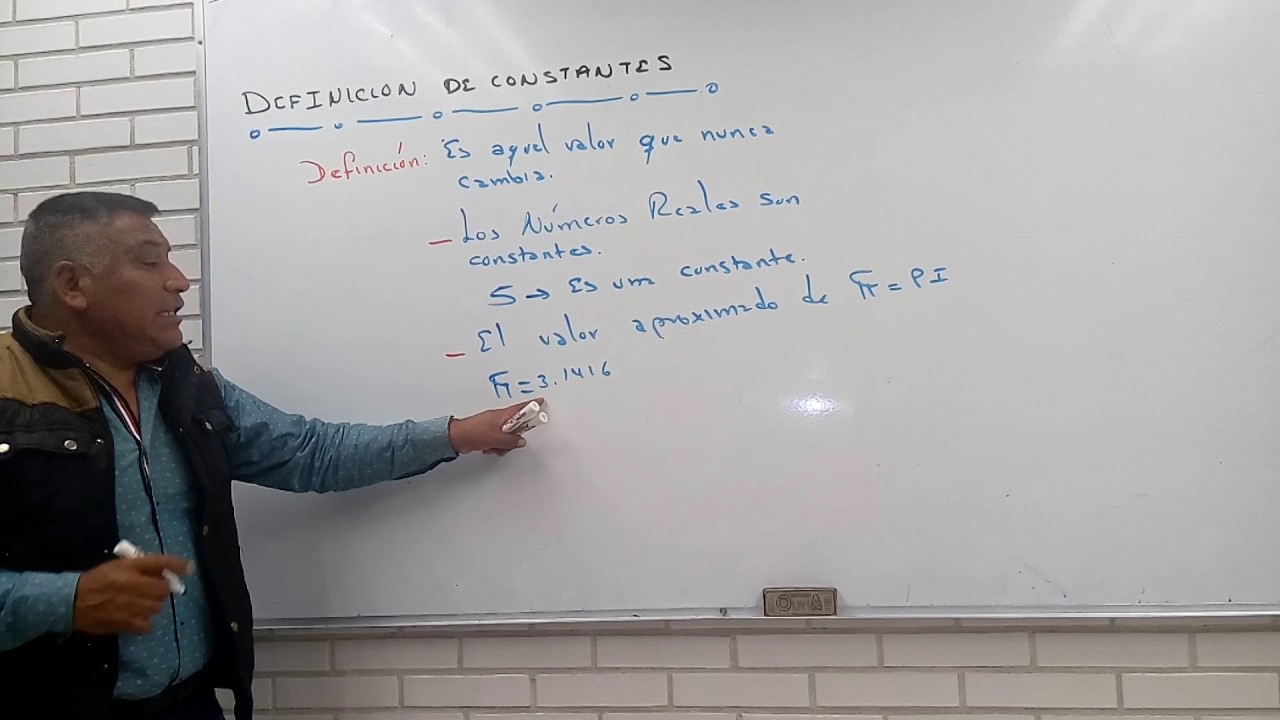 DEFINICION DE CONSTANTES
Definición: Es aquel valor que nunca
cambia.
- Los Números Reales son
constantes.
5 → Es una constante.
- El valor aproximado de π = PI
π = 3.1416